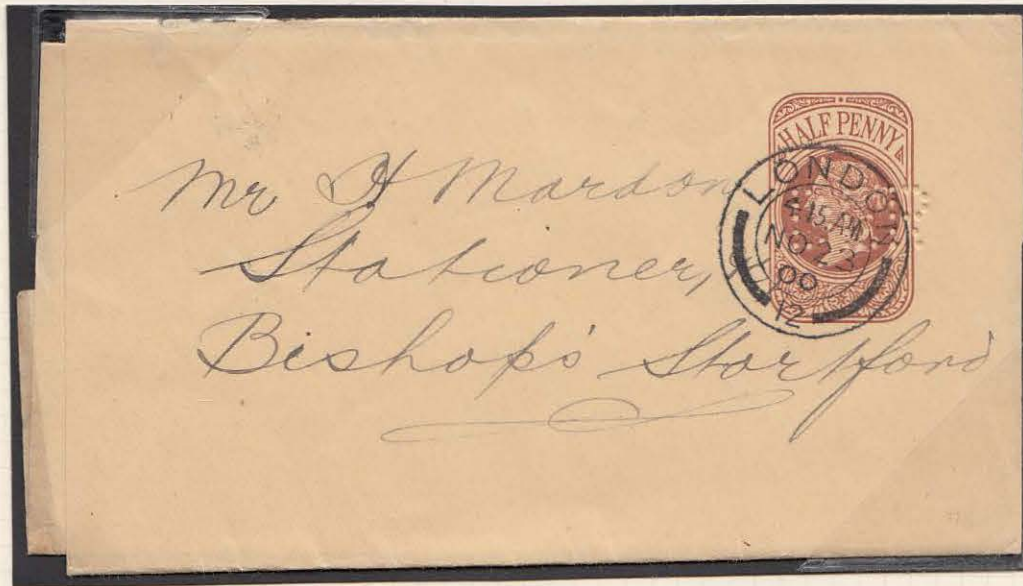 HALF PENNY
LONDON
4 15 AM
NO 23
00
12
Mr H Mardon
Stationer,
Bishop's Stortford